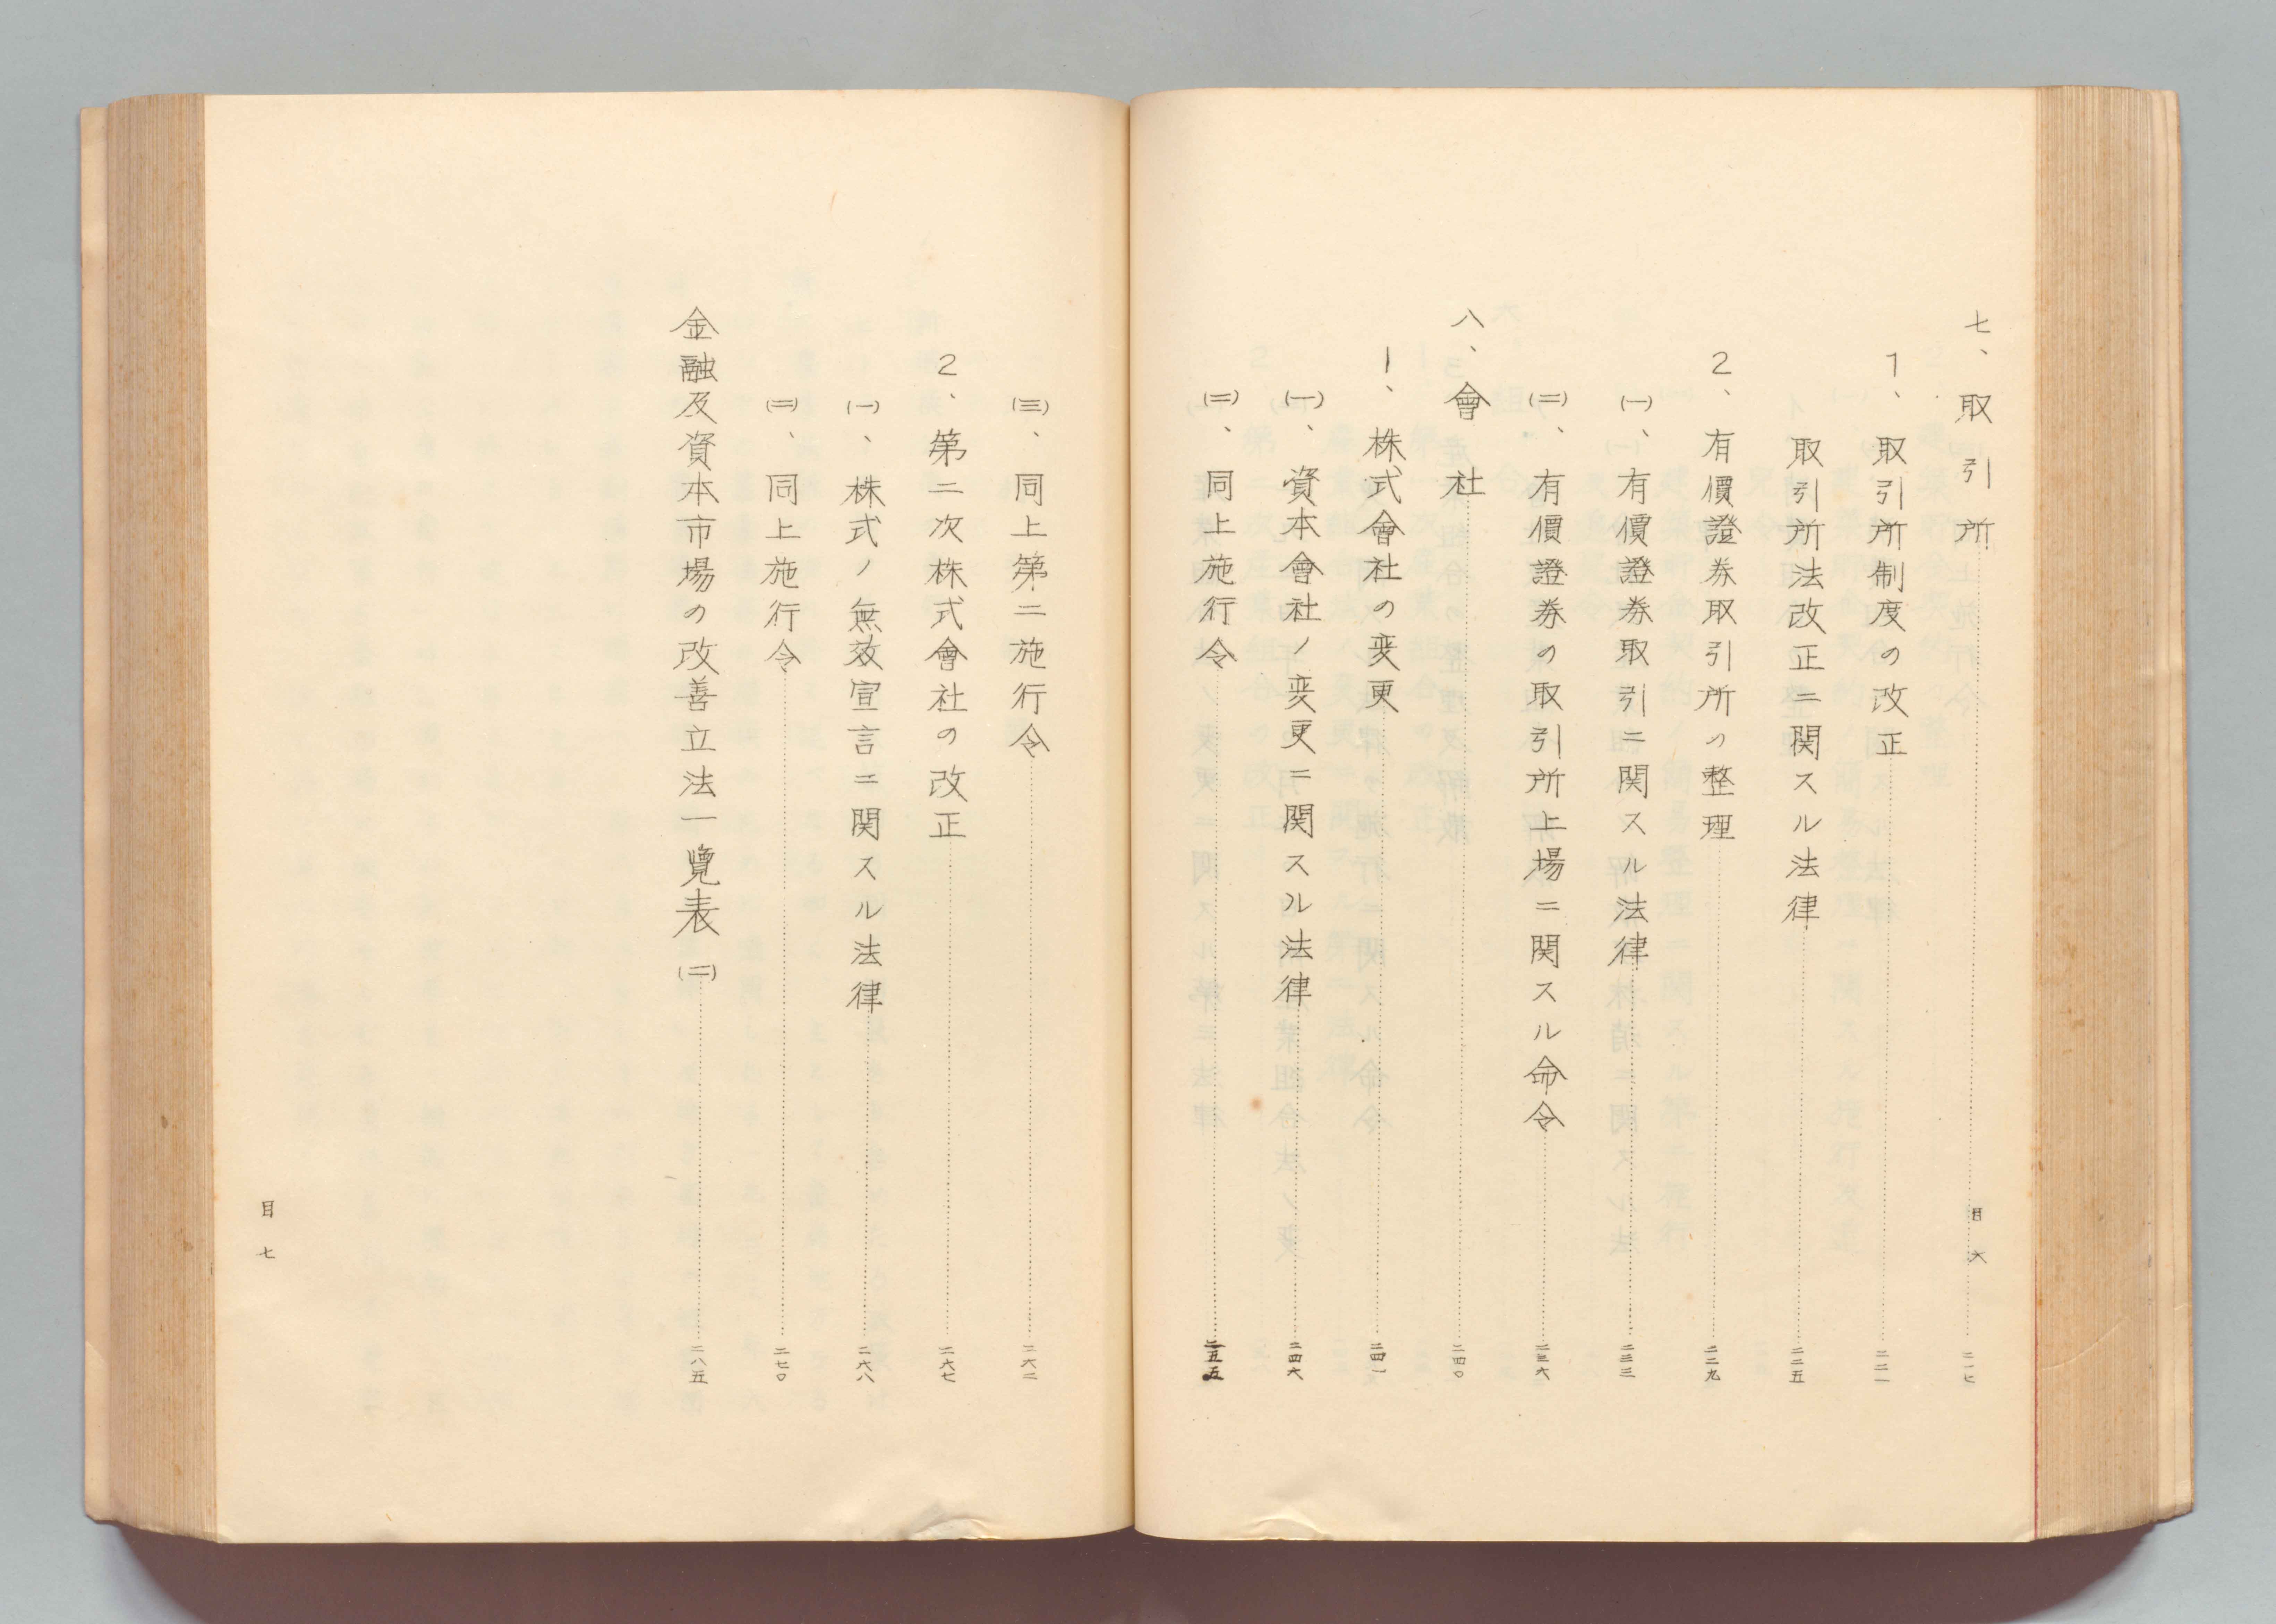 七、取引所……二一七
1、取引所制度の改正……二二一
取引所法改正ニ関スル法律……二二五
2、有價證券取引所の整理……二二九
(一)、有價證券取引ニ関スル法律……二三三
(二)、有價證券の取引所上場ニ関スル命令……二三六
八、會社……二四〇
1、株式會社の変更……二四一
(一)、資本會社ノ変更ニ関スル法律……二四六
(二)、同上施行令……二五五
目六
(三)、同上第二施行令……二六二
2、第二次株式會社の改正……二六七
(一)、株式ノ無效宣言ニ関スル法律……二六八
(二)、同上施行令……二七〇
金融及資本市場の改善立法一覽表(二)……二八五
目七